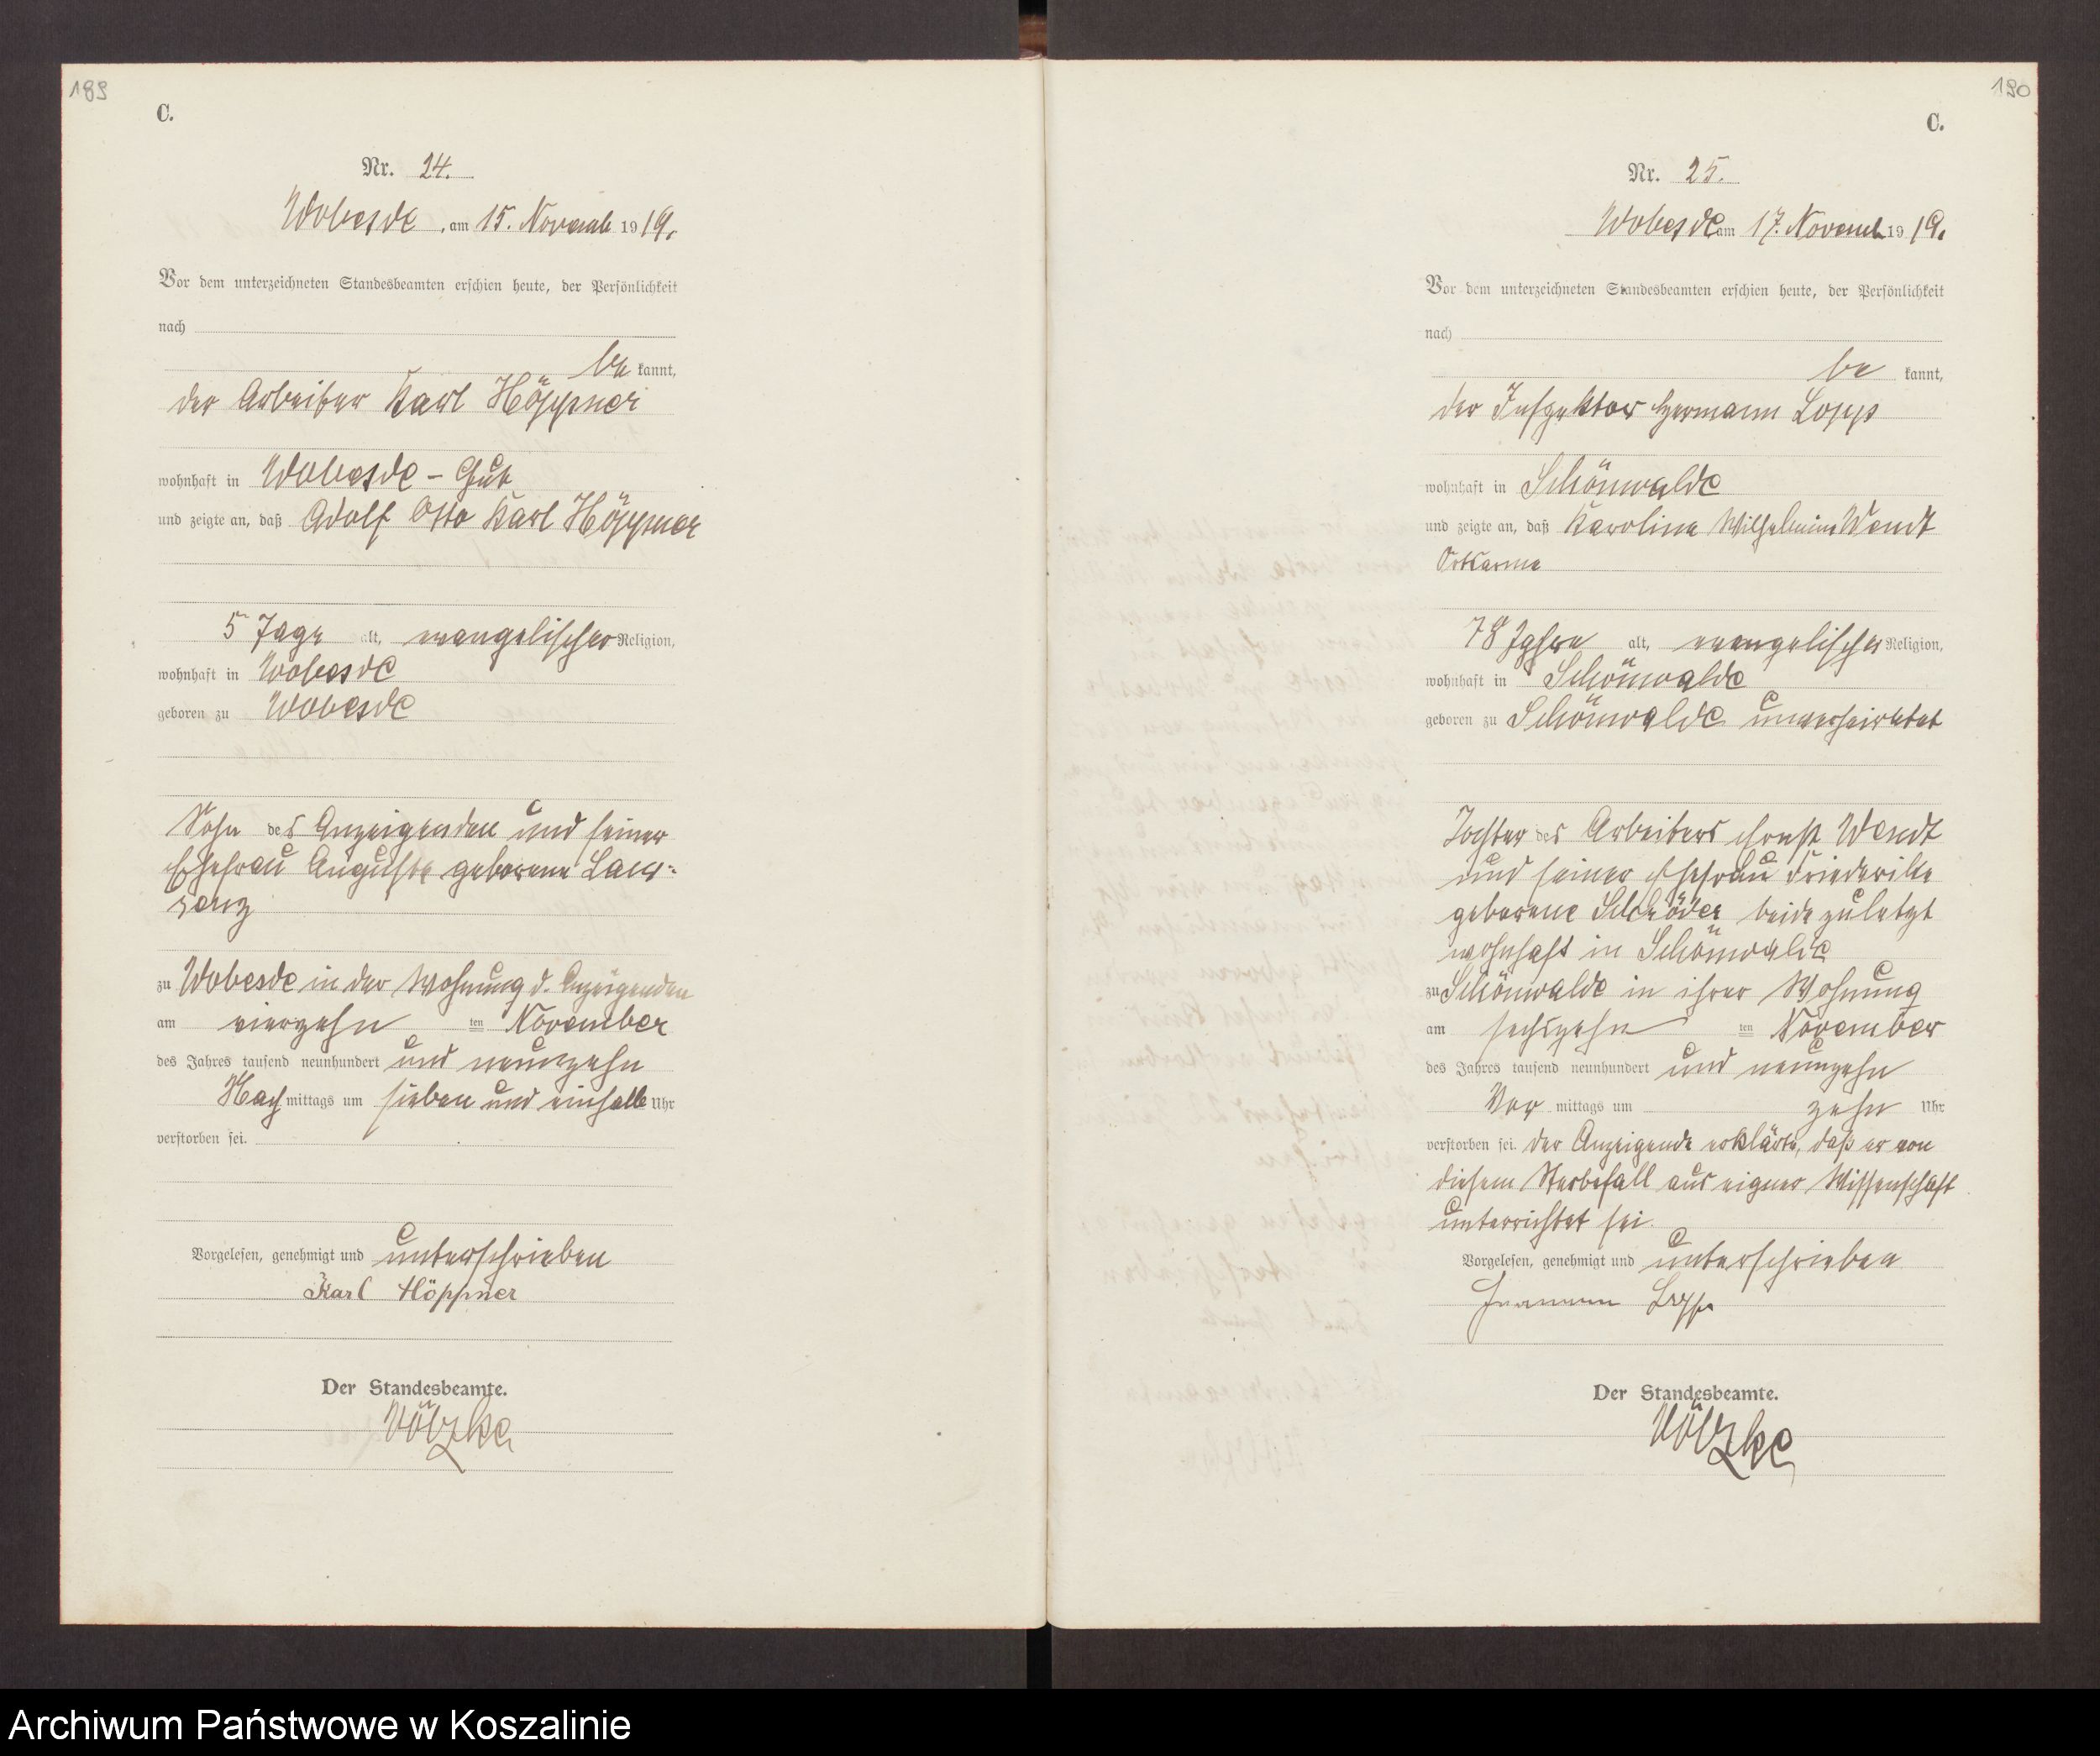 189
C.
Nr. 24.
Wobesde, am 15. Novemb 1919.
Vor dem unterzeichneten Standesbeamten erschien heute, der Persönlichkeit
nach
be kannt,
der Arbeiter Karl Höppner
wohnhaft in Wobesde - Gut
und zeigte an, daß Adolf Otto Karl Höppner
5 Tage alt, evangelischer Religion,
wohnhaft in Wobesde
geboren zu Wobesde
Sohn des Anzeigenden und seiner
Ehefrau Auguste geborene Law-
renz
zu Wobesde in der Wohnung d. Anzeigenden
am vierzehn ten November
des Jahres tausend neunhundert und neunzehn
Nach mittags um sieben und einhalb Uhr
verstorben sei.
Vorgelesen, genehmigt und unterschrieben
Karl Höppner
Der Standesbeamte.
Völzke
190
C.
Nr. 25.
Wobesde am 17. Novemb 1919.
Vor dem unterzeichneten Standesbeamten erschien heute, der Persönlichkeit
nach
be kannt,
der Inspektor Hermann Lopp
wohnhaft in Schönwalde
und zeigte an, daß Karoline Wilhelmine Wendt
Ortsarme
78 Jahre alt, evangelischer Religion,
wohnhaft in Schönwalde
geboren zu Schönwalde unverheiratet
Tochter des Arbeiters Ernst Wendt
und seiner Ehefrau Friederike
geborene Schröder beide zuletzt
wohnhaft in Schönwalde
zu Schönwalde in ihrer Wohnung
am sechszehn ten November
des Jahres tausend neunhundert und neunzehn
Vor mittags um zehn Uhr
verstorben sei. Der Anzeigende erklärte, daß er von
diesem Sterbefall aus eigner Wissenschaft
unterrichtet sei.
Vorgelesen, genehmigt und unterschrieben
Hermann Lopp
Der Standesbeamte.
Völzke
Archiwum Państwowe w Koszalinie